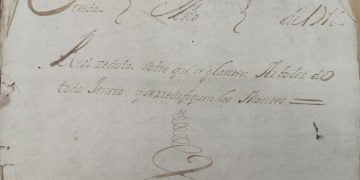 Año de 1716.
Real zedula. sobre que se planten Arboles de
todo genero y se reedifiquen los Montes